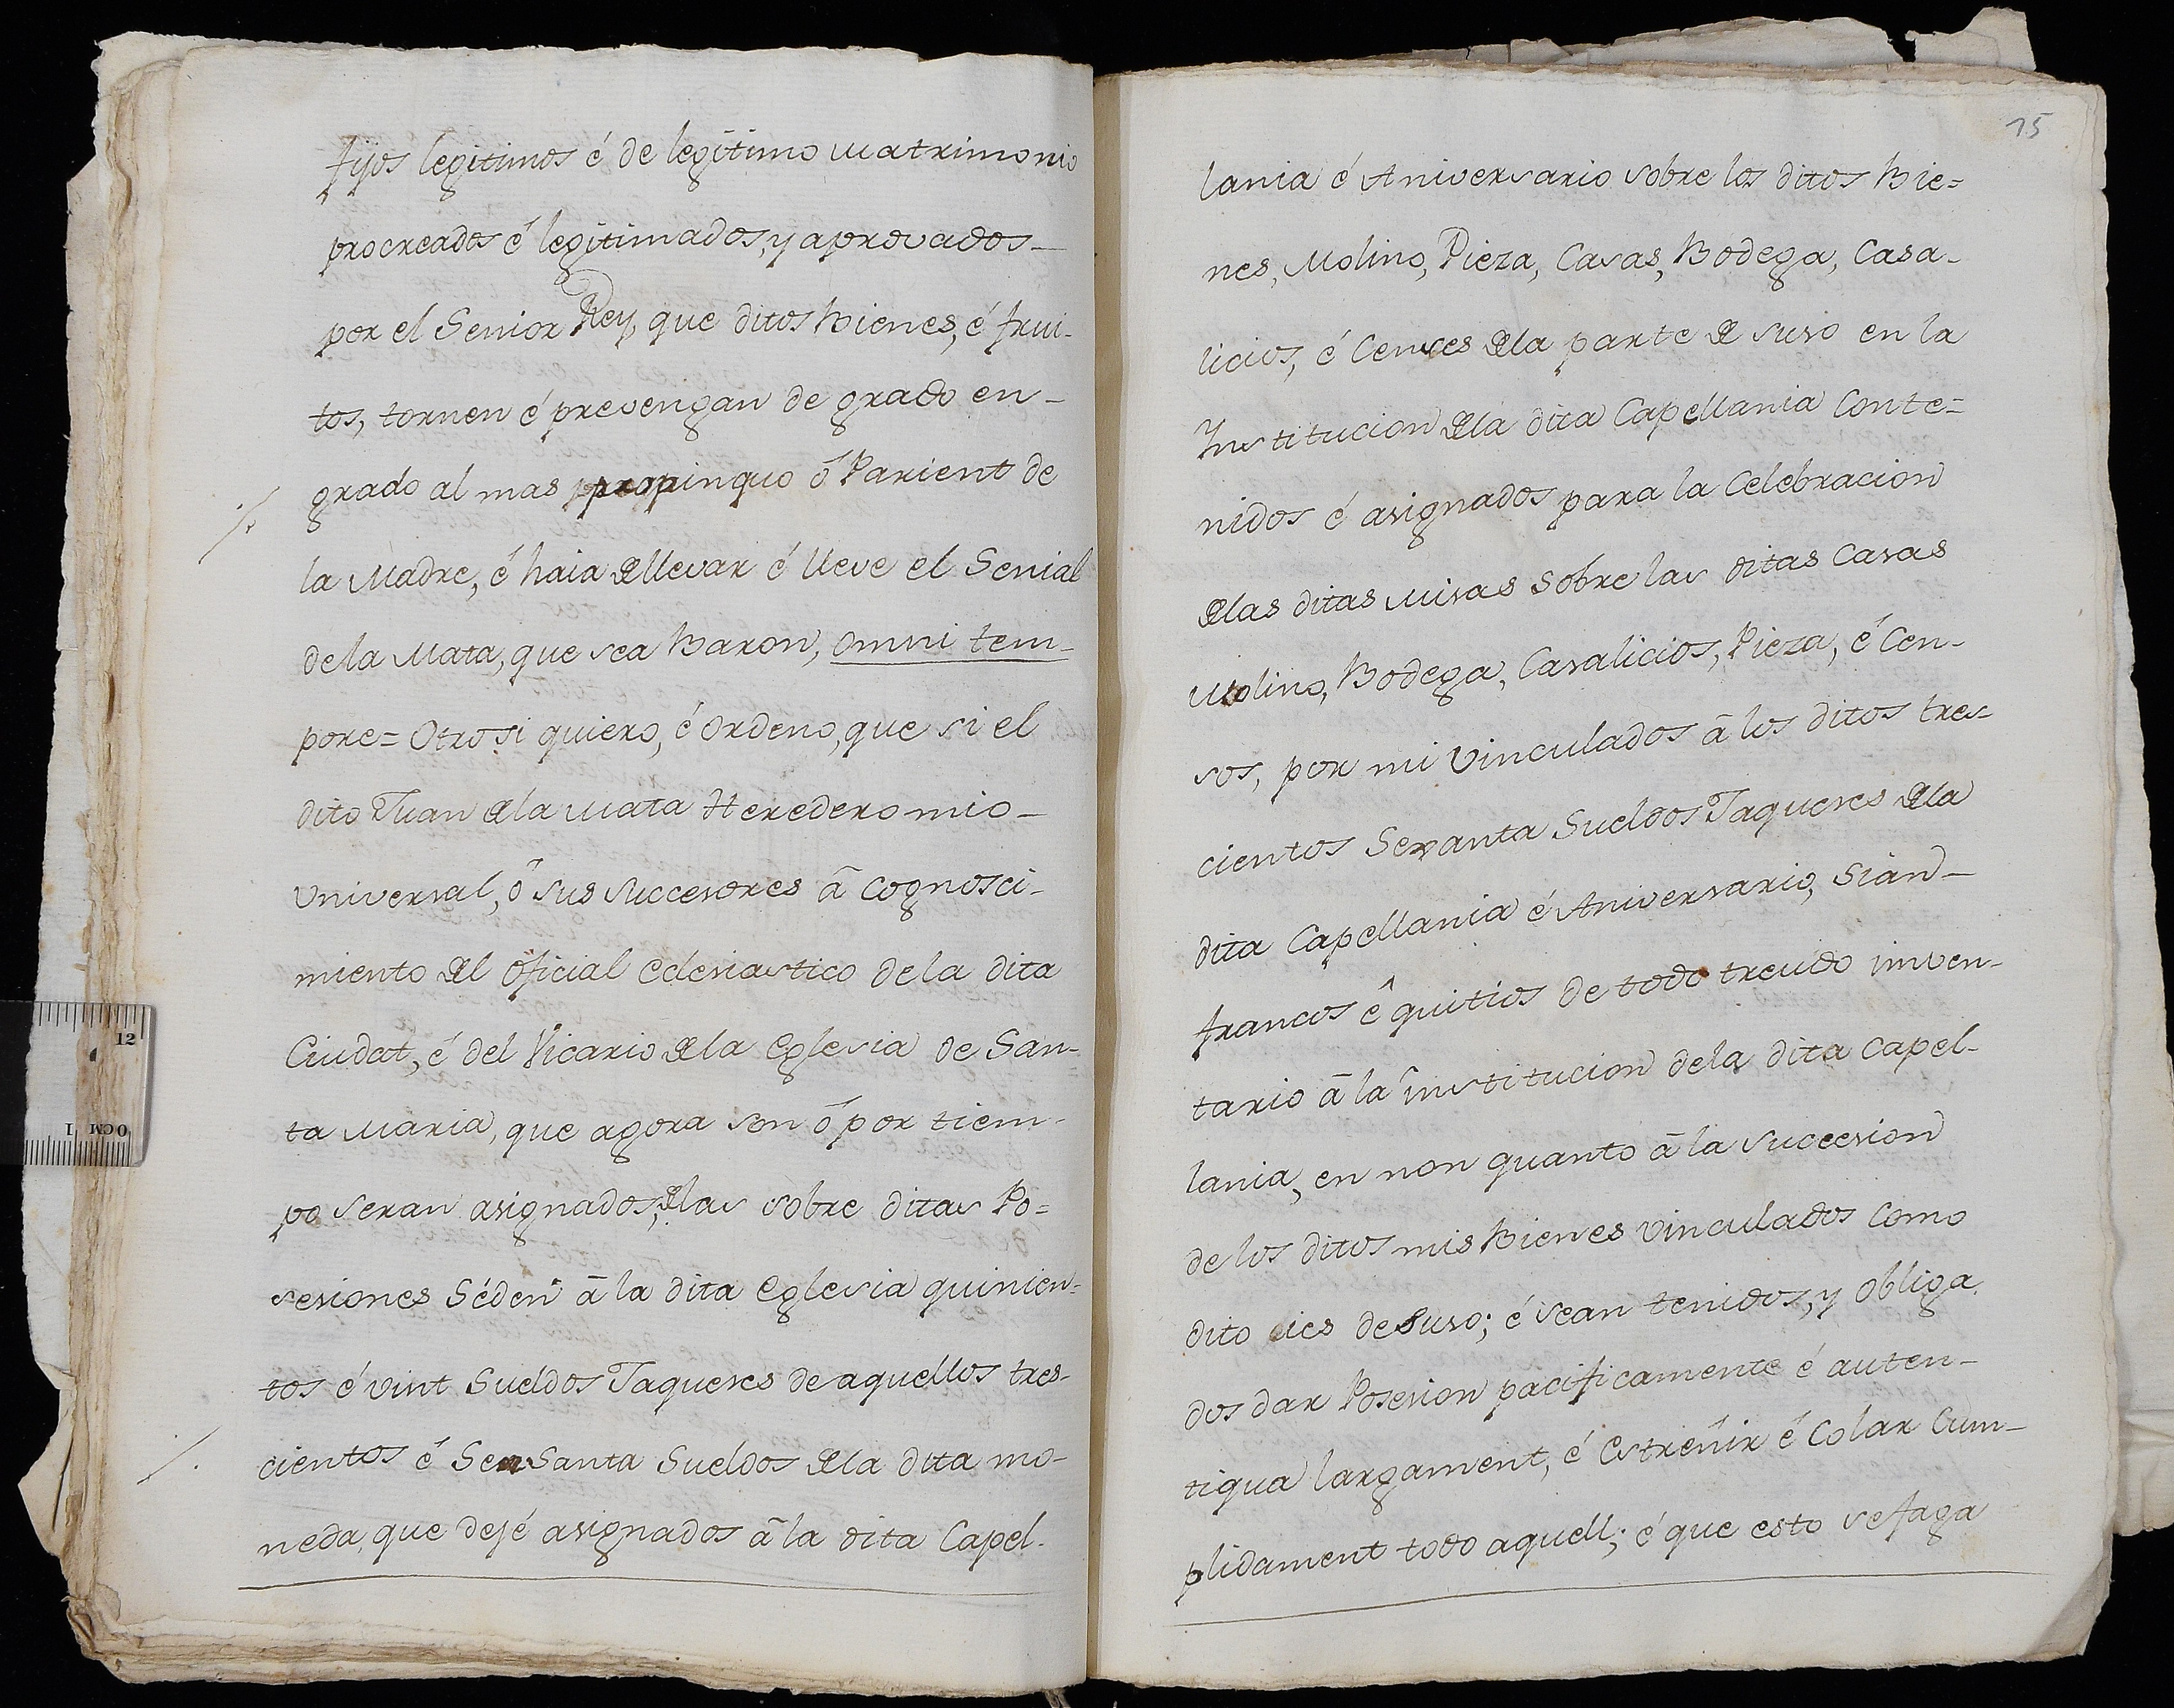 fijos legitimos é de legitimo Matrimonio
procreados é legitimados, y aprovados_
por el Senior Rey, que ditos Bienes, é frui-
tos, tornen é prevengan de grado en-
grado al mas propinquo ó Parient de
la Madre, é haia de llevar é lleve el Senial
de la Mata, que sea Baron, omni tem-
pore= Otrosi quiero, é ordeno, que si el
dito Juan de la Mata Heredero mio_
Universal, ó sus Successores â Cognosci-
miento del Oficial Eclesiastico de la dita
Ciudat, é del Vicario de la Eglesia de San-
ta Maria, que agora son ó por tiem-
po seran asignados, de las sobre ditas Po=
sesiones Séden â la dita Eglesia quinien-
tos é vint Sueldos Jaqueses de aquellos tres-
cientos é Sensanta Sueldos de la dita mo-
neda, que dejé asignados â la dita Capel-
15
lania é Aniversario sobre los ditos Bie=
nes, Molino, Pieza, Casas, Bodega, Casa-
licios, é Censes de la parte de suso en la
Institucion de la dita Capellania Conte=
nidos é asignados para la Celebracion
de las ditas Misas sobre las ditas Casas
Molino, Bodega, Casalicios, Pieza, é Cen-
sos, por mi Vinculados â los ditos tres-
cientos Sexanta Sueldos Jaqueses de la
dita Capellania é Aniversario, Siand_
francos ê quitios de todo treudo inven-
tario â la institucion de la dita Capel-
lania, en non quanto â la Succesion
de los ditos mis Bienes vinculados Como
dito ies de Suso; é sean tenidos, y obliga
dos dar Posesion pacificamente é auten-
tiqua largament, é Estreñir é Colar Cum-
plidament todo aquell; é que esto se faga
12
0CM 1